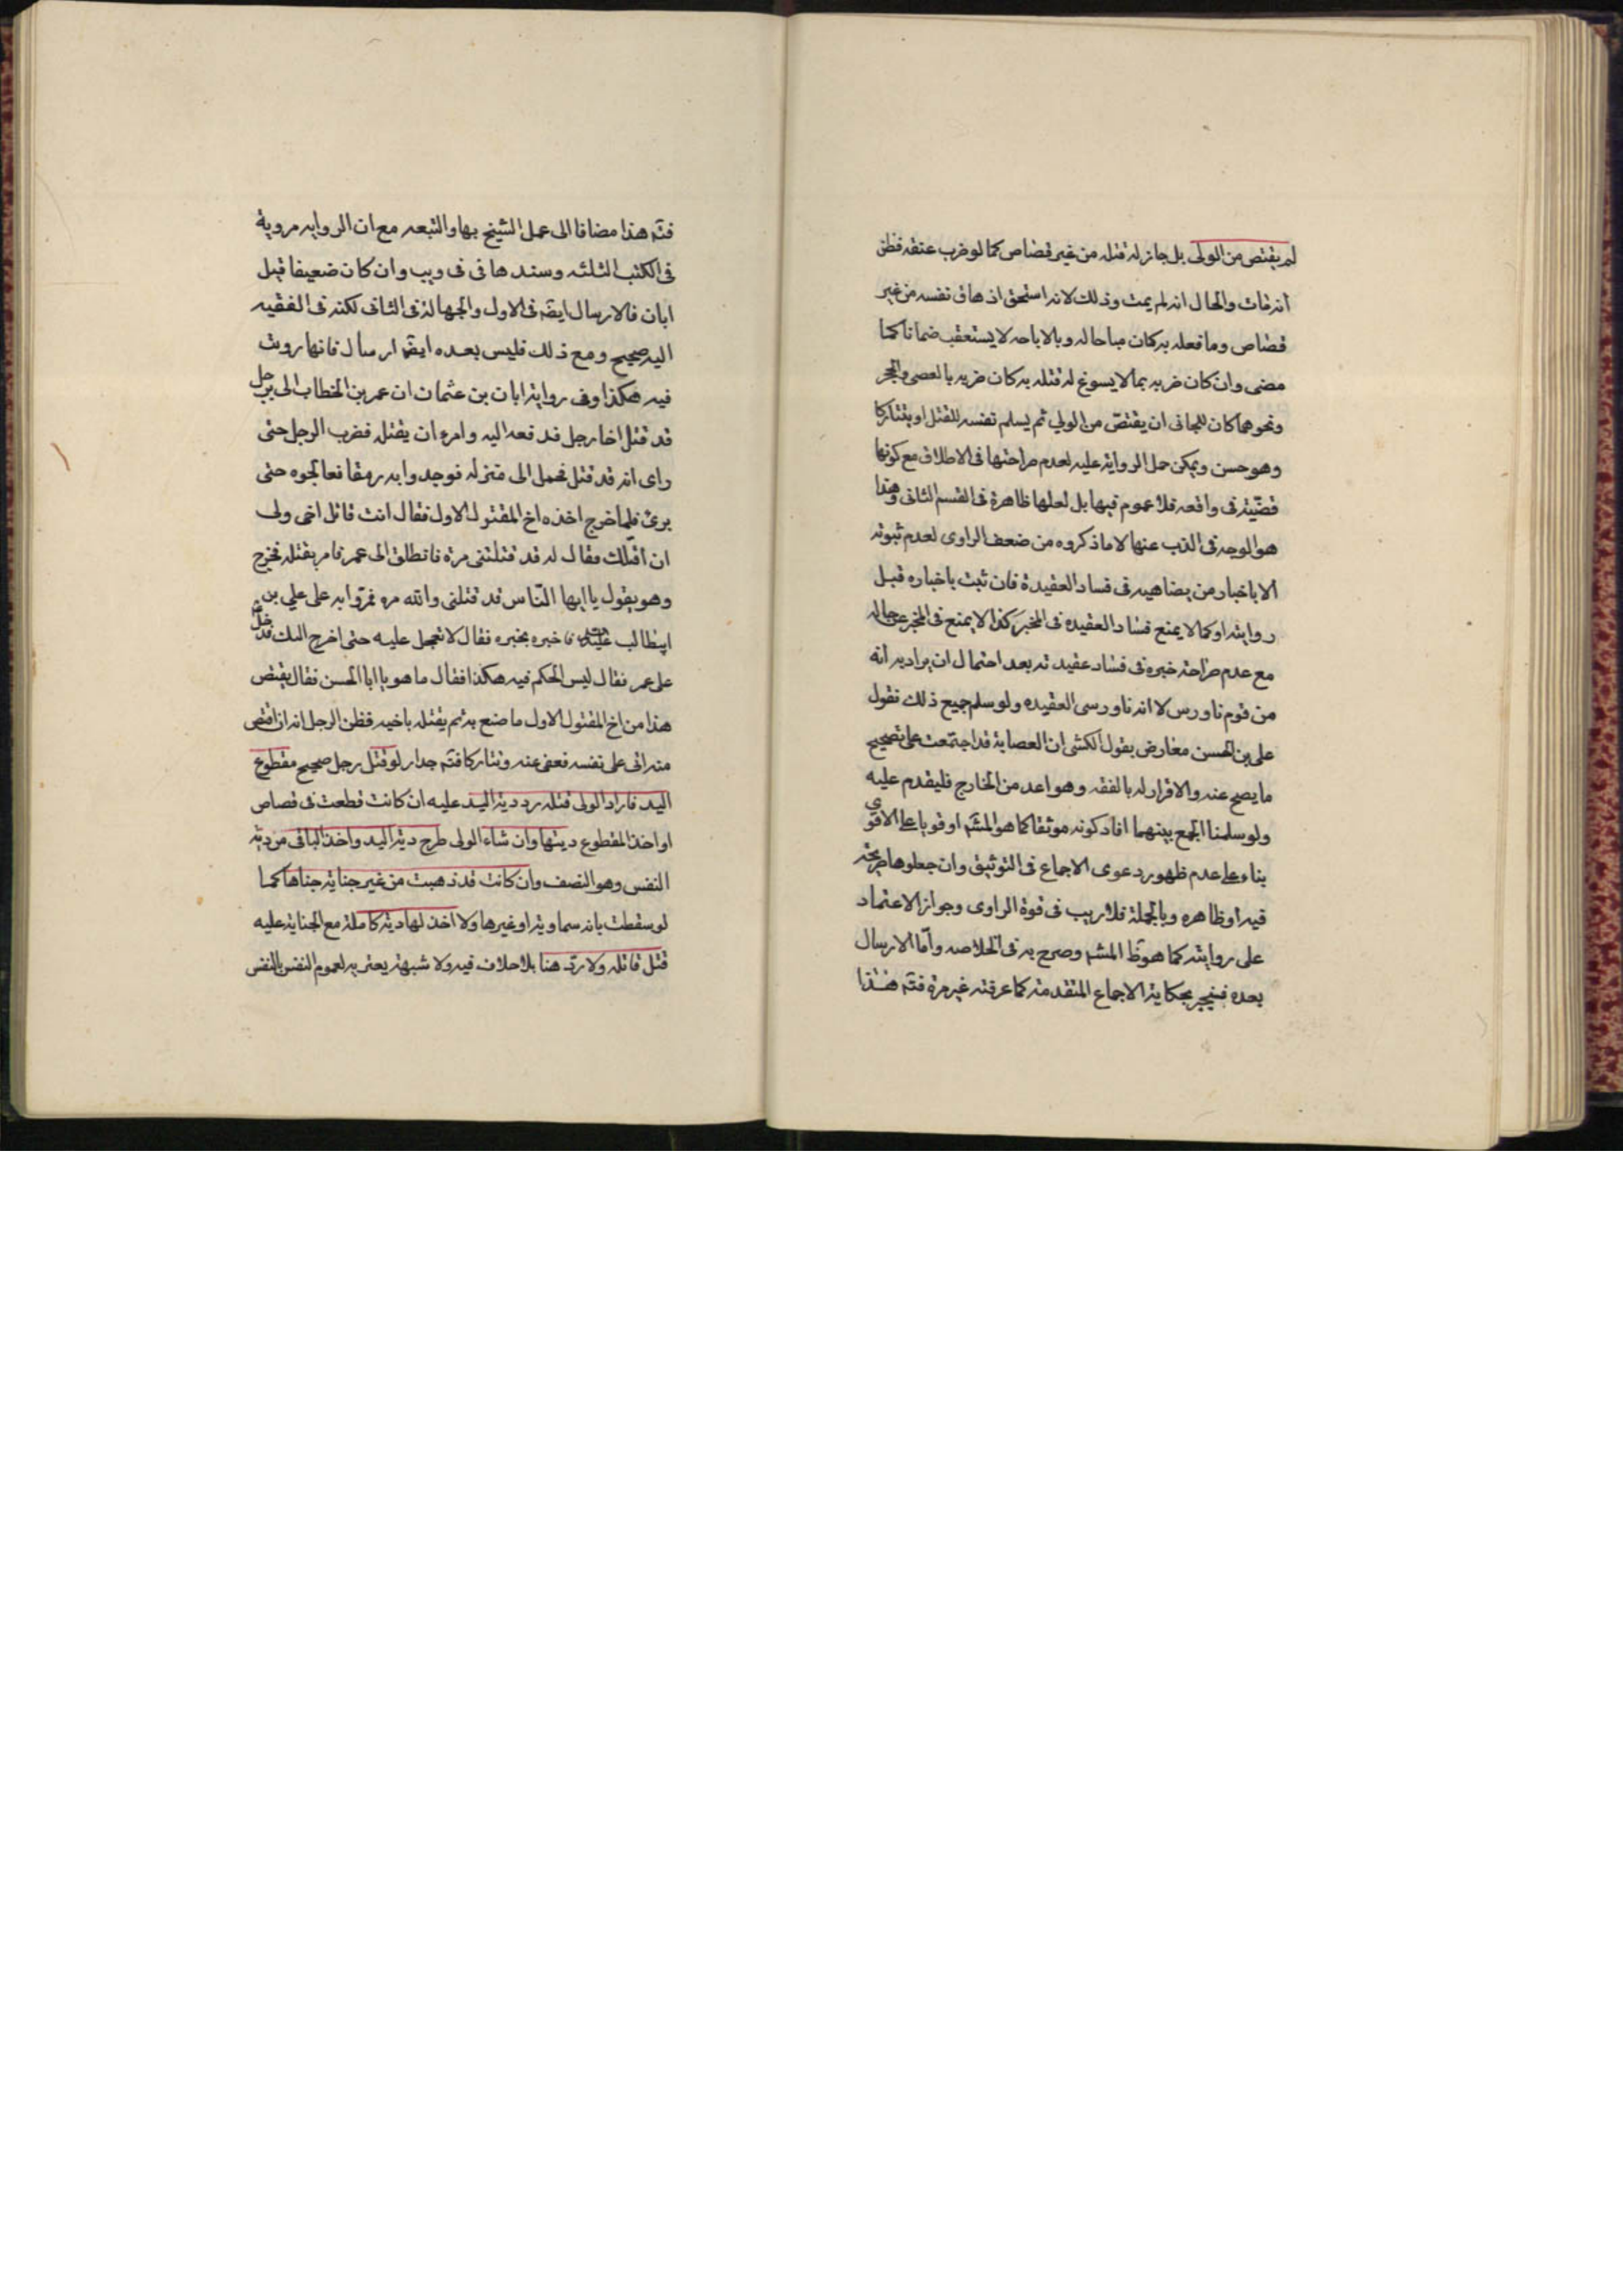 لم يقتص من الولى بل جاز له قتله من غير قصاص كما لو ضرب عنقه فظن
انه مات والحال انه لم يمت وذلك لانه استحق اذهاق نفسه من غير
قصاص وما فعله به كان مباحا له وبالاباحه لا يستعقب ضمانا كما
مضى وان كان ضربه بما لا يسوغ له قتله به كان ضربه بالعصى والحجر
ونحوهما كان للجانى ان يقتص من الولي ثم يسلم نفسه للقتل او يتتاركا
وهو حسن ويمكن حمل الرواية عليه لعدم صراحتها فى الاطلاق مع كونها
قضيّة فى واقعه فلا عموم فيها بل لعلها ظاهرة فى القسم الثانى وهذا
هو الوجه فى الذب عنها لا ما ذكروه من ضعف الراوى لعدم ثبوته
الا باخبار من يضاهيه فى فساد العقيدة فان ثبت باخباره قبل
روايته او كما لا يمنع فساد العقيده فى المخبر كذا لا يمنع فى المخبر عن حاله
مع عدم صراحة خبره فى فساد عقيدته بعد احتمال ان يراد به انه
من قوم ناورس لا انه ناورسى العقيده ولو سلم جميع ذلك نقول
على بن الحسن معارض بقول الكشى ان العصابة قد اجتمعت على تصحيح
ما يصح عنه والاقرار له بالفقه وهو اعد من الخارج فليقدم عليه
ولو سلمنا الجمع بينهما افاد كونه موثقا كما هو المشهٓ او قويا على الاقوى
بناء على عدم ظهور دعوى الاجماع فى التوثيق وان جعلوها صريحة
فيه او ظاهره وبالجملة فلا ريب فى قوة الراوى وجواز الاعتماد
على روايته كما هو ظ المشهٓ وصرح به فى الخلاصه وامّا الارسال
بعده فينجبر بحكاية الاجماع المتقدمة كما عرفته غير مرة فتٓم هذا
فتٓم هذا مضافا الى عمل الشيخ بها والتبعه مع ان الروايه مروية
فى الكتب الثلثه وسندها فى فى ويب وان كان ضعيفا قبل
ابان فالارسال ايضٓ فى الاول والجهالة فى الثانى لكنه فى الفقيه
اليه صحيح ومع ذلك فليس بعده ايضٓا ارسال فانها رويت
فيه هكذا وفى رواية ابان بن عثمان ان عمر بن الخطاب الى برجل
قد قتل اخا رجل فدفعه اليه وامره ان يقتله فضرب الرجل حتى
راى انه قد قتل فحمل الى منزله فوجدوا به رمقا فعالجوه حتى
برئ فلما خرج اخذه اخ المقتول الاول فقال انت قاتل اخى ولى
ان اقتلك فقال له قد قتلتنى مرة فانطلق الى عمر فامر بقتله فخرج
وهو يقول يا ايها النّاس قد قتلنى والله مره فمرّوا به على علي بن
ابيطالب فاخبره بخبره فقال لا تعجل عليه حتى اخرج اليك فدخل
على عمر فقال ليس الحكم فيه هكذا فقال ما هو يا ابا الحسن فقال يقتص
هذا من اخ المقتول الاول ما صنع به ثم يقتله باخيه فظن الرجل انه ان اقتص
منه اتى على نفسه فعفى عنه وتتاركا فتٓم جدا ر لو قتل رجل صحيح مقطوع
اليد فاراد الولى قتله رد دية اليد عليه ان كانت قطعت فى قصاص
او اخذ المقطوع ديتها وان شاء الولى طرح دية اليد واخذ الباقى من دية
النفس وهو النصف وان كانت قد ذهبت من غير جناية جناها كما
لو سقطت بافه سماوية او غيرها ولا اخذ لها دية كاملة مع الجناية عليه
قتل قاتله ولا ردّ هنا بلا خلاف فيه ولا شبهة يعترية لعموم النفس بالنفس